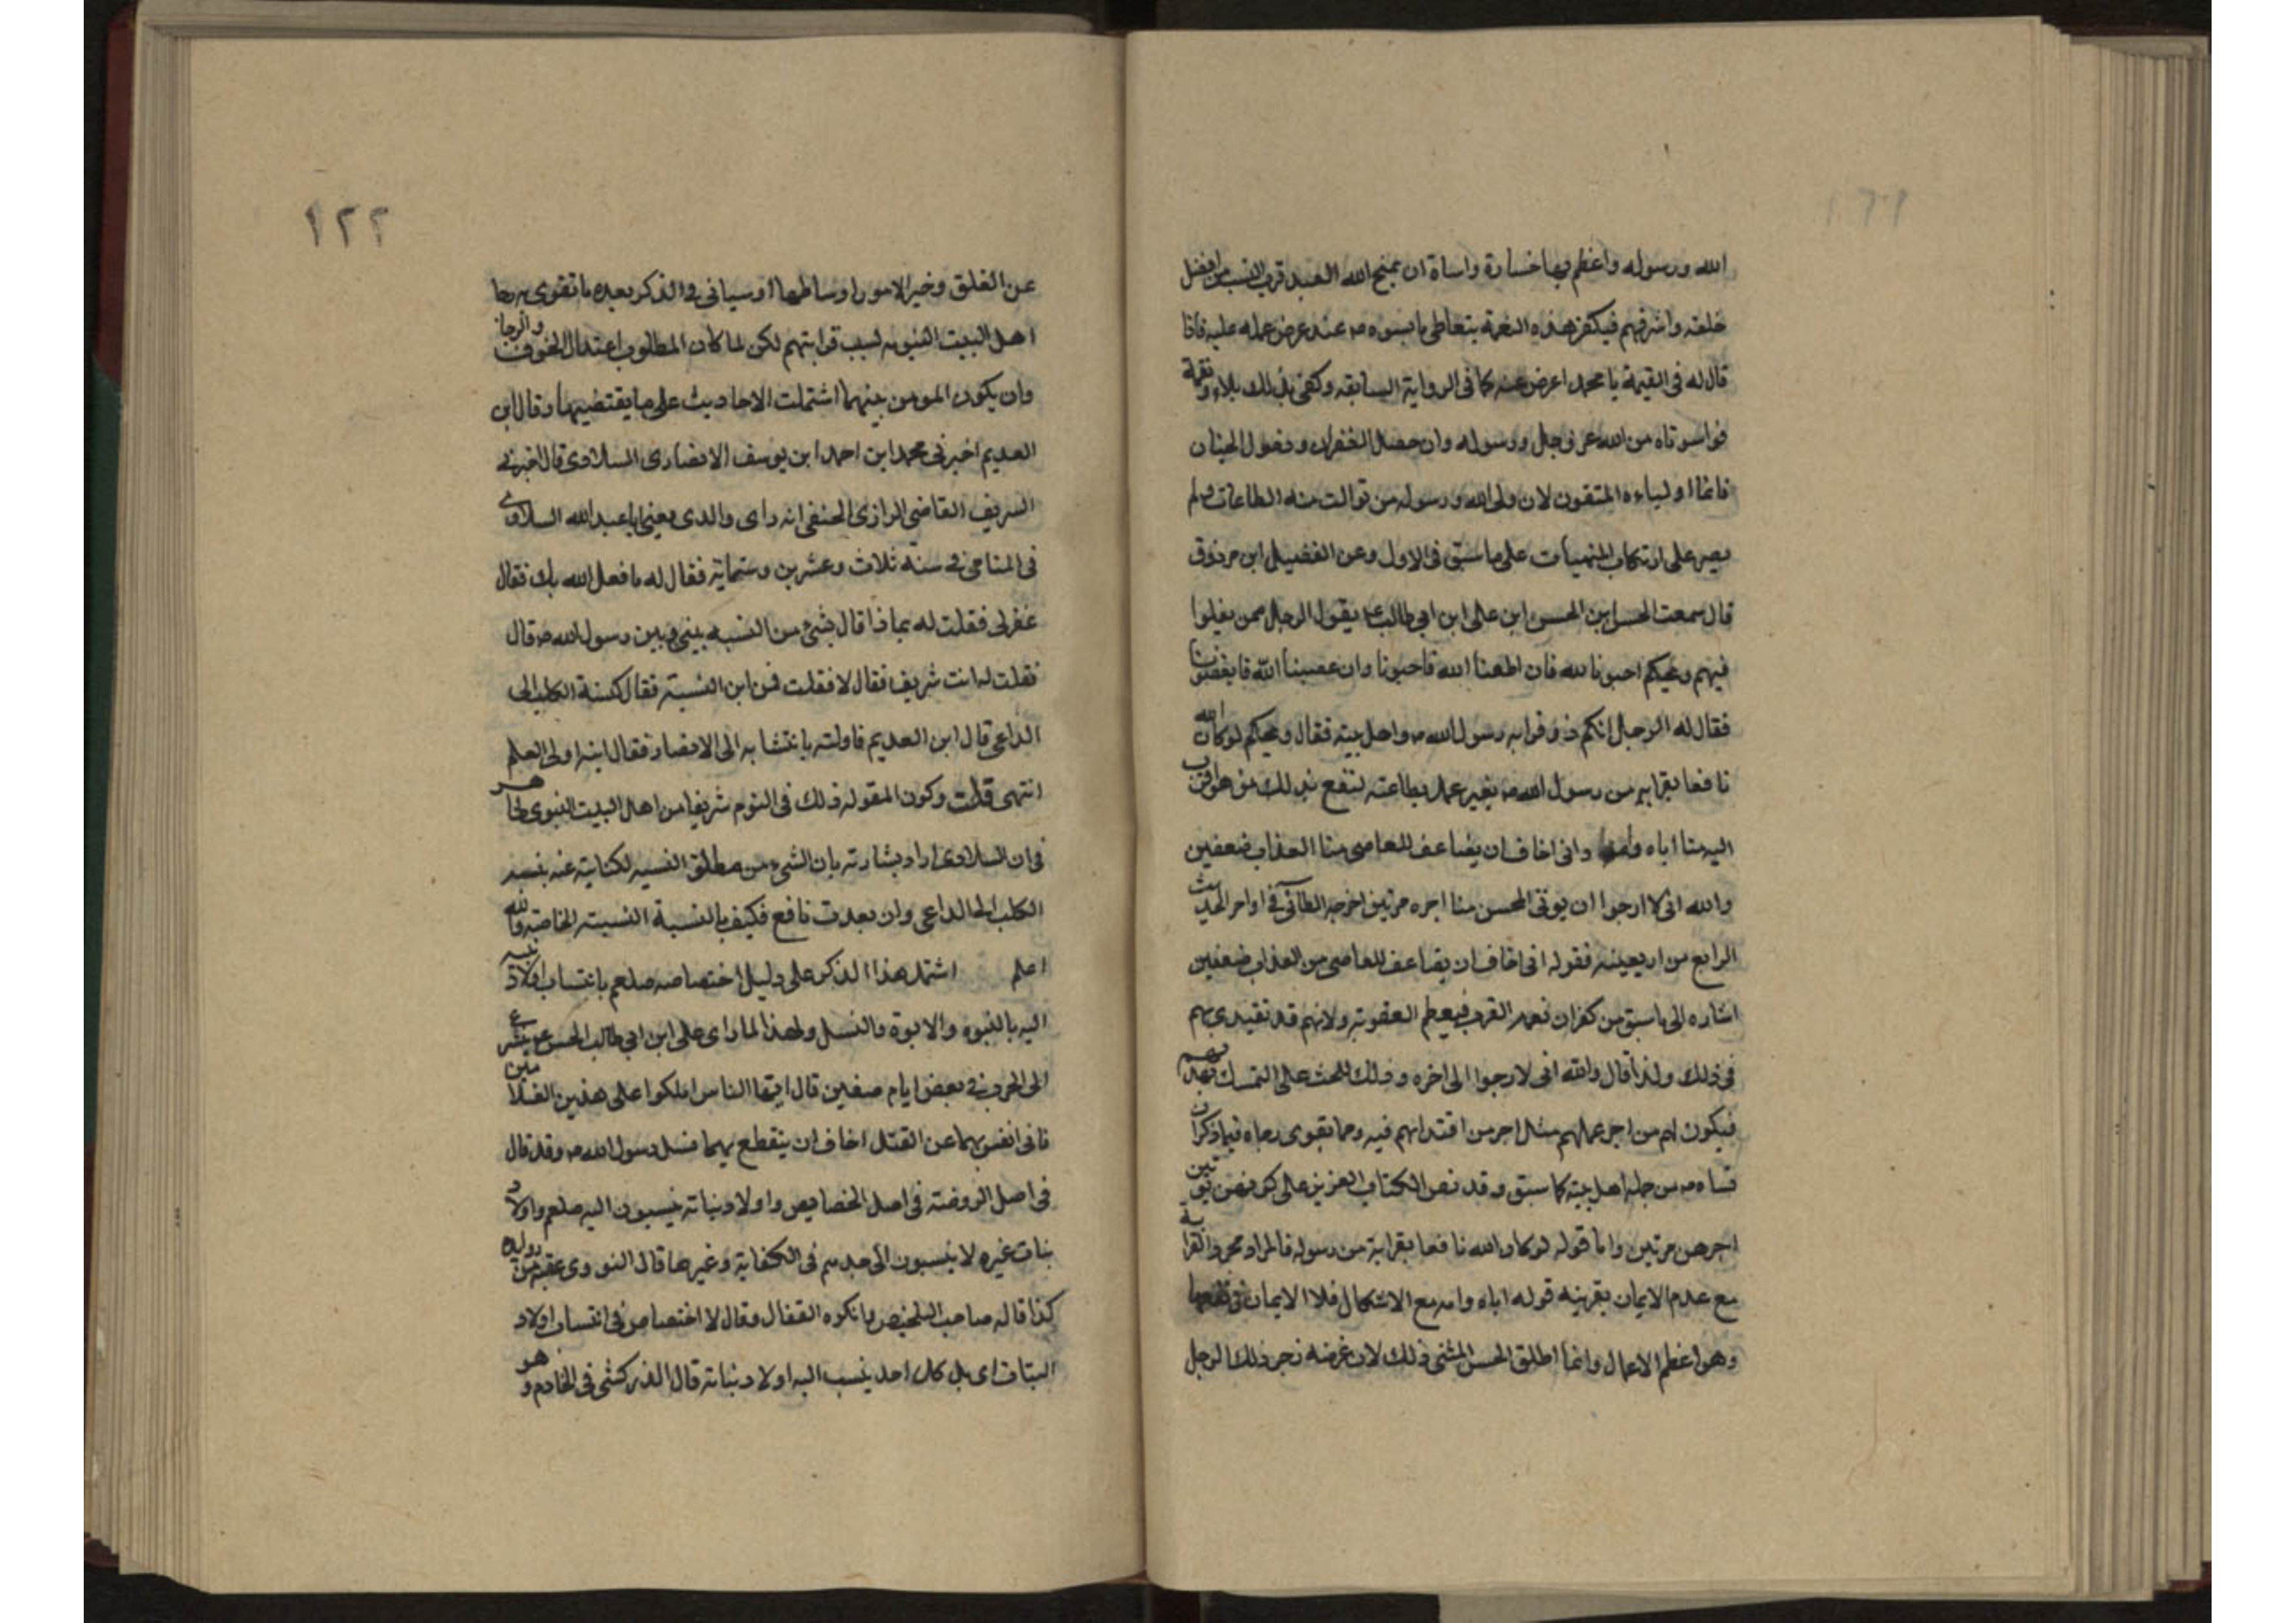 الله ورسوله واعظم بها خسارة واساة ان يمنح الله العبد قرب النسب من افضل
خلقه واشرفهم فيكفر هذه النعمة بتعاطى ما يسوه صه عند عرض عمله عليه فاذا
قال له فى القيمة يا محمد اعرض عنه كما فى الرواية السابقه وكفى بذلك بلاء ونقمة
فواسوتاه من الله عز وجل ورسوله وان حصل الغفران ودخول الجنان
فانما اولياءه المتقون لان ولى الله ورسوله من توالت منه الطاعات ولم
يصر على ارتكاب المنهيات على ما سبق فى الاول وعن الفضيل ابن مرزوق
قال سمعت الحسن ابن الحسن ابن على ابن ابى طالب ع يقول الرجل ممن يغلوا
فيهم ويحكم احبونا لله فان اطعنا الله فاحبونا وان عصينا الله فابغضونا
فقال له الرجل انكم ذو قرابه رسول الله صه واهل بيته فقال ويحكم لو كان الله
نافعا بقرابه من رسول الله صه بغير عمل بطاعته لنفع بذلك من هو اقرب
اليه منا اباه وامه وانى اخاف ان يضاعف للعاصى منا العذاب ضعفين
والله انى لا ارجوا ان يوتى المحسن منا اجره مرتين اخرجه الطائى فى اواخر الحديث
الرابع من اربعينه فقوله انى اخاف ان يضاعف للعاصى من العذاب ضعفين
اشاره الى ما سبق من كفران نعمه القرب فيعظم العقوبة ولانهم قد تقيدى بهم
فى ذلك ولذا قال والله انى لارجوا الى اخره وذلك للحث على التمسك بهديهم
فيكون لهم من اجر عملهم مثل اجر من اقتدا بهم فيه ومما يقوى رجاه فيما ذكر ان
نساه صه من جمله اهل بيته كما سبق وقد نص الكتاب العزيز على كونهن يوتين
اجرهن مرتين واما قوله لو كان الله نافعا بقرابة من رسوله فالمراد مجرد القرابة
مع عدم الايمان بقرينه قوله اباه وامه مع الاشكال فلا الايمان فى نفعها
وهو اعظم الاعمال وانما اطلق الحسن المثنى ذلك لان غرضه زجر ذلك الرجل
١٢٢
عن الغلق وخير الامور اوساطها وسيانى والذكر بعده ما تقوى به رجا
اهل البيت النبويه لسبب قرابتهم لكن لما كان المطلوب اعتدال الخوف والرجا
وان يكون المومن بينهما اشتملت الاحاديث على ما يقتضيهما وقال ابن
العديم اخبرنى محمد ابن احمد ابن يوسف الانصارى السلاوى قال اخبرنى
الشريف القاضى الرازى الحنفى انه راى والدى يعنى ابا عبد الله السلاوى
فى المنام فى سنة ثلاث وعشرين وستماية فقال له ما فعل الله بك فقال
غفر لى فقلت له بماذا قال بشئ من النسبه بينى وبين رسول الله صه قال
فقلت له انت شريف فقال لا فقلت فمن اين النسبة فقال كنسبة الكلب الى
الداعى قال ابن العديم فاولته بانتسابه الى الانصار فقال ابنه او الى العلم
انتهى قلت وكون المقوله ذلك فى النوم شريفا من اهل البيت النبوى ظاهر
فى ان السلاوى اراد بشارته بان الشئ من مطلق النسبه لكنايته عنه بنسبه
الكلب الى الداعى وان بعدت نافع فكيف بالنسبة النسبية الخاصة والله
اعلم اشتمل هذا الذكر على دليل اختصاصه صلعم بانتساب اولاد بنته
اليه بالنبوه والابوة والنسل ولهذا لما راى على ابن ابى طالب الحسن ع يتسرع
الى الحرب فى بعض ايام صفين قال ايها الناس املكوا على هذين الغلامين
فانى انفس بهما عن القتل اخاف ان ينقطع بهما نسل رسول الله صه وقد قال
فى اصل الروضه فى اصل الخصايص واولاد بناته ينسبون اليه صلعم واولاد
بنات غيره لا ينسبون الى جدهم فى الكفاية وغيرها قال النووى عقبه من
كذا قاله صاحب التلخيص وانكره القفال وقال لا اختصاص فى انتساب اولاد
البنات اى بل كل احد ينسب اليه اولاد بناته قال الزركشى فى الخادم وهو